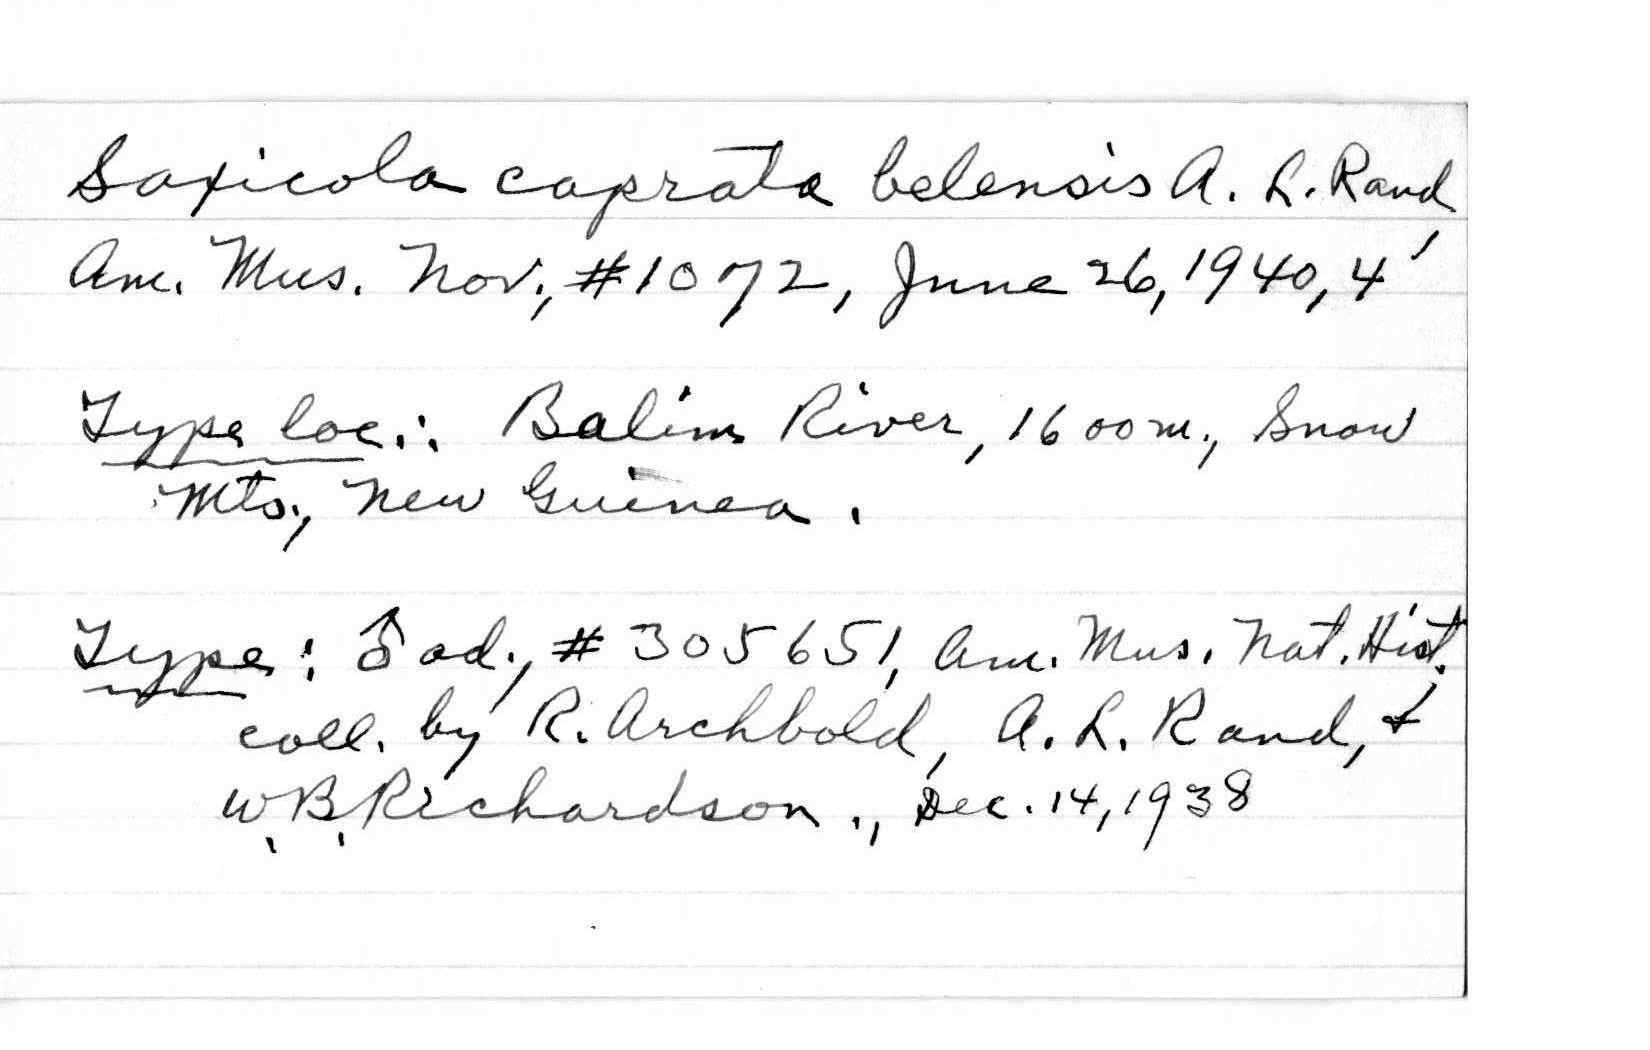 Saxicola caprata belensis A. L. Rand,
Am. Mus. Nov., #1072, June 26, 1940, 4
Type loc.: Balim River, 1600 m., Snow
Mts., New Guinea.
Type: ♂ ad., #305651, Am. Mus. Nat. Hist.,
coll. by R. Archbold, A. L. Rand, &
W. B. Richardson., Dec. 14, 1938